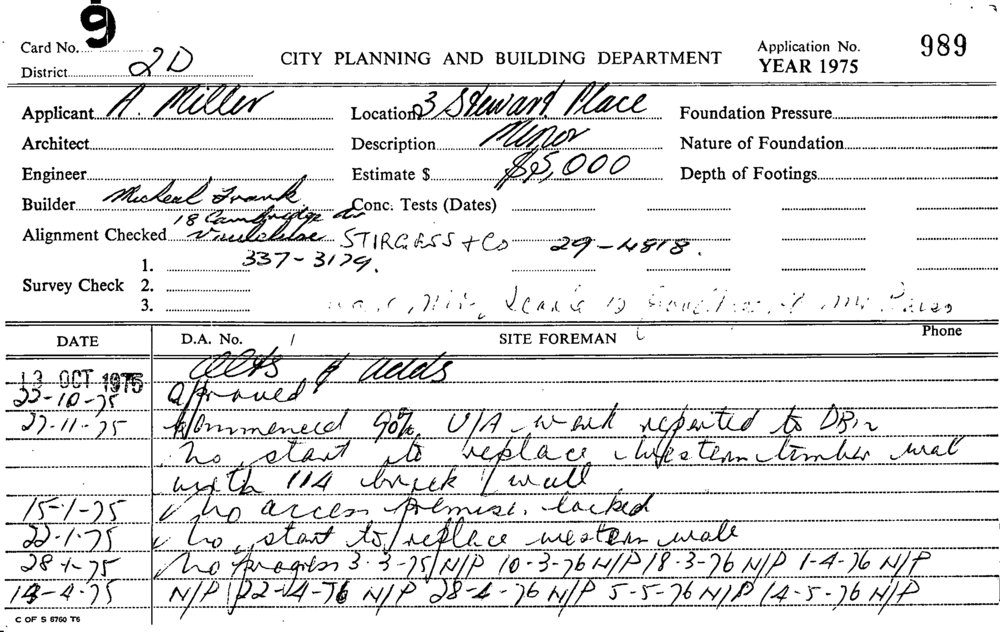 9
Card No.
District 2D
CITY PLANNING AND BUILDING DEPARTMENT
Application No. 989
YEAR 1975
Applicant A. Miller
Location 3 Stewart Place
Foundation Pressure
Architect
Description Minor
Nature of Foundation
Engineer
Estimate $ $5,000
Depth of Footings
Builder Micheal Frank
Conc. Tests (Dates)
18 Cambridge
Alignment Checked Vaucluse STIRGESS + Co 29-4818.
337-3179.
Survey Check
1.
2.
3.
DATE D.A. No. SITE FOREMAN Phone
13 OCT 1975 Alts & adds
22-10-75 Approved
27-11-75 Commenced 90% U/A work reported to
no start to replace western timber wal
with 114 brick wall
15-1-75 No access premise. locked
22-1-75 No start to replace western wall
28-1-75 No progress 3-3-75 N/P 10-3-76 N/P 18-3-76 N/P 1-4-76 N/P
14-4-75 N/P 22-4-76 N/P 28-4-76 N/P 5-5-76 N/P 14-5-76 N/P
C OF S 8760 T6